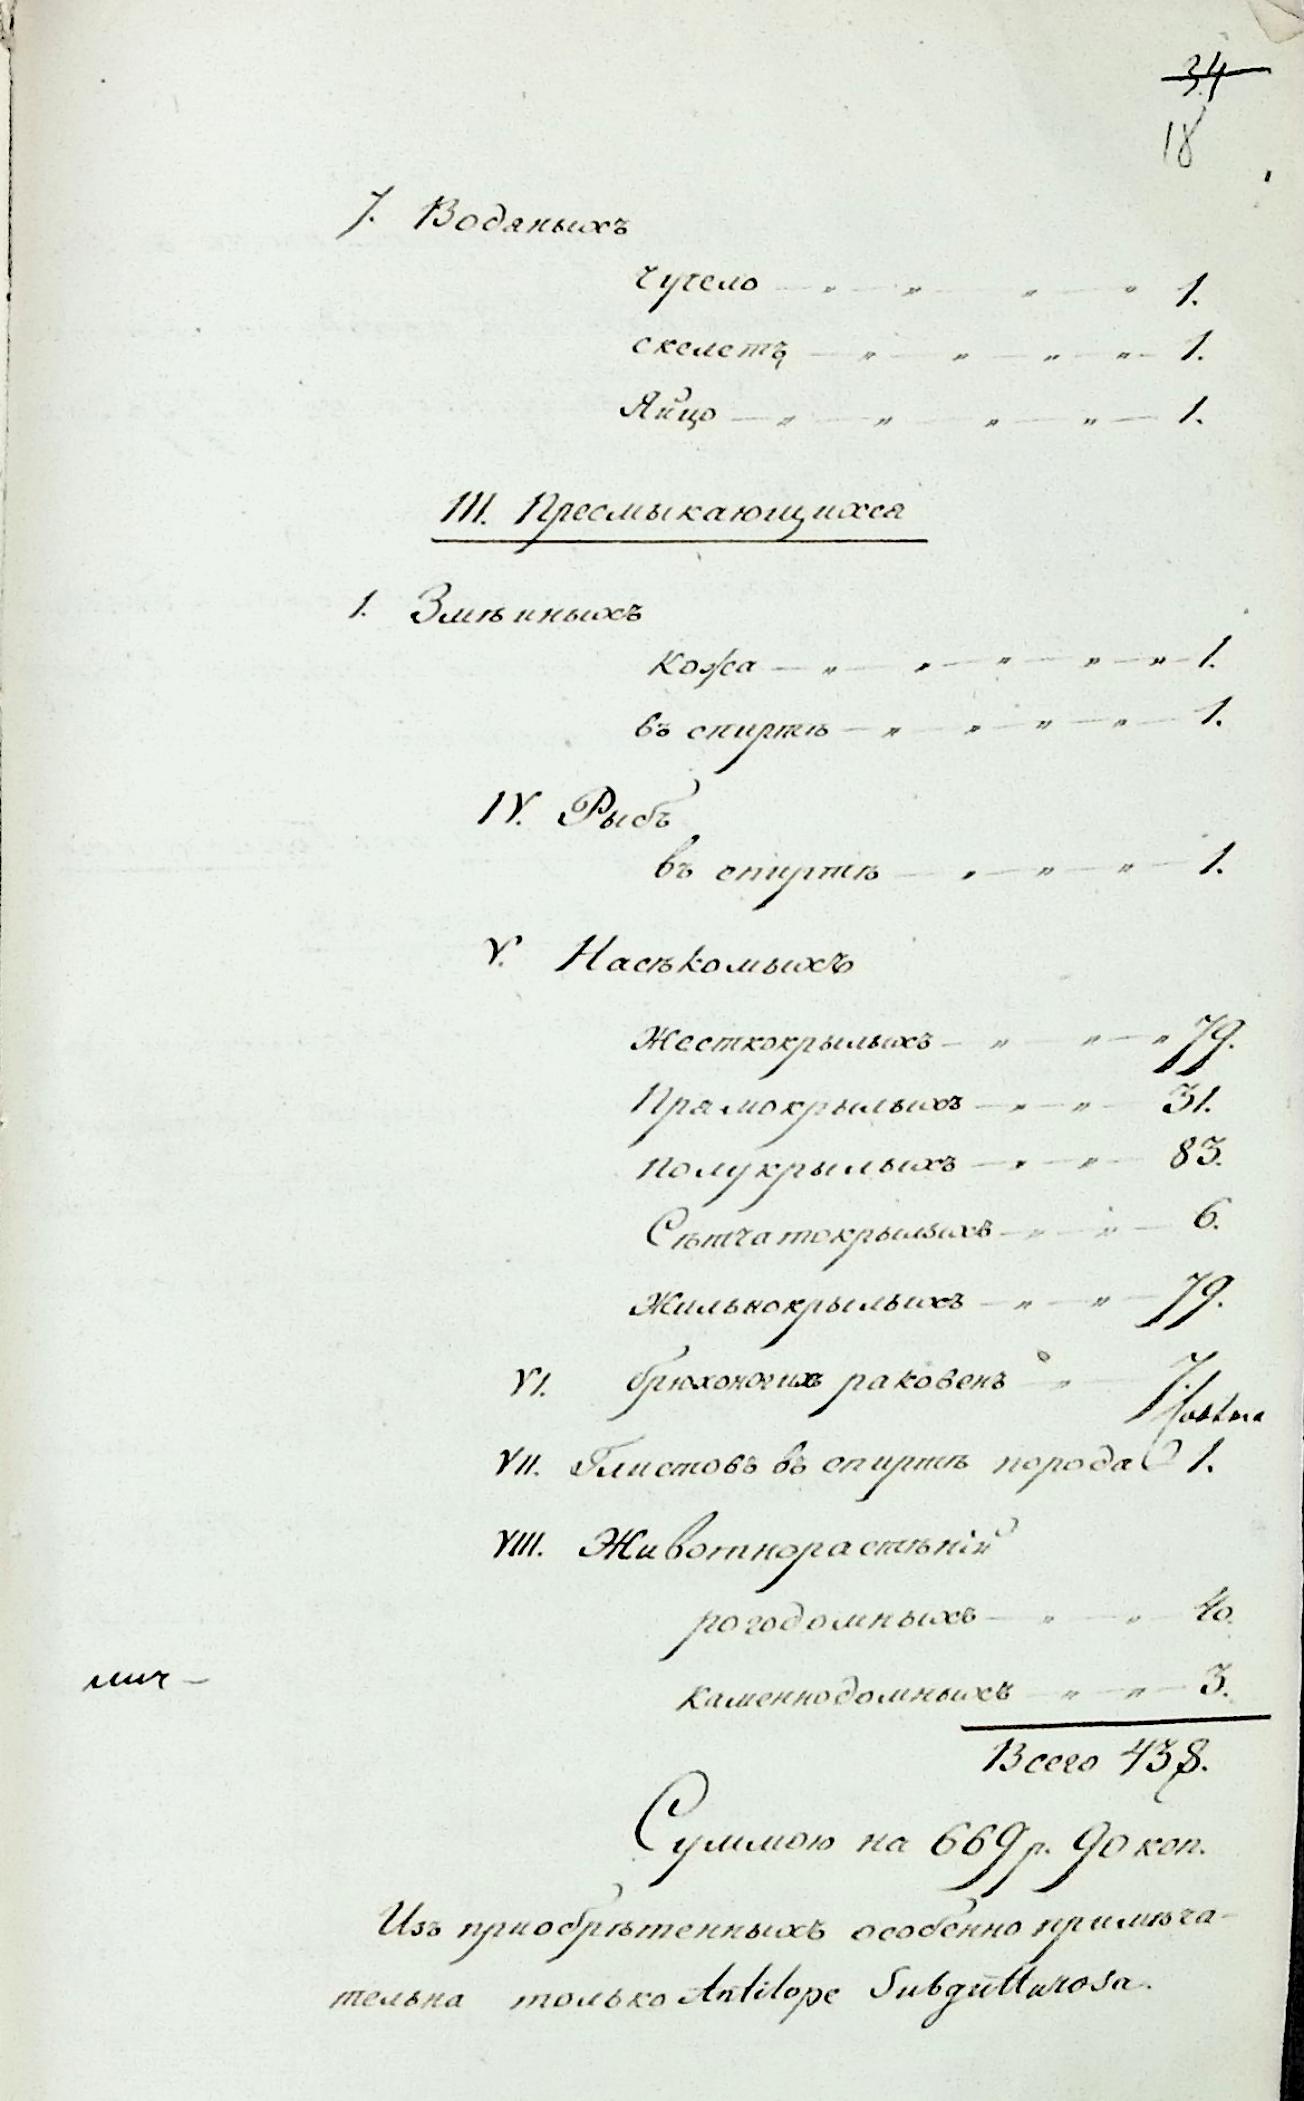 34
18
7. Водяныхъ
чучело — „ — „ „ — „ 1.
скелетъ — „ — „ — „ — „ — 1.
Яйцо — „ — „ — „ — „ — 1.
III. Пресмыкающихся
1. Змѣиныхъ
кожа — „ — „ — „ — „ — „ — 1.
въ спиртѣ — „ — „ — „ — „ — 1.
IV. Рыбъ
въ спиртѣ — „ — „ — „ — 1.
V. Насѣкомыхъ
Жесткокрылыхъ — „ — „ — „ 79.
Прямокрылыхъ — „ — „ — 31.
Полукрылыхъ — „ — „ — 83.
Сѣтчатокрылыхъ — „ — „ — 6.
Жильнокрылыхъ — „ — „ — 79.
VI. брюхоногихъ раковенъ — „ — 7.
VII. Глистовъ въ спиртѣ порода 1.
VIII. Животнорастѣній
рогодомныхъ — „ — „ — 40.
каменнодомныхъ — „ — „ — 3.
Всего 438.
Суммою на 669 р. 90 коп.
Изъ приобрѣтенныхъ особенно примѣча-
тельна только Antilope Subgutturosa.